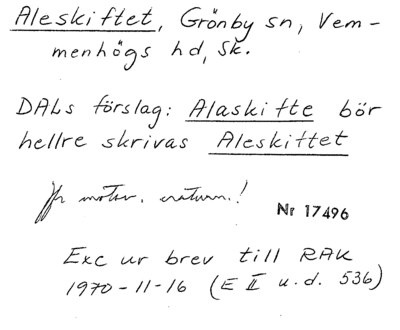 Aleskiftet, Grönby sn, Vem-
menhögs hd, Sk.
DALs förslag: Alaskifte bör
hellre skrivas Aleskiftet
Jfr motsv. ersturn.!
Nr 17496
Exc ur brev till RAK
1970-11-16 (E II u.d. 536)